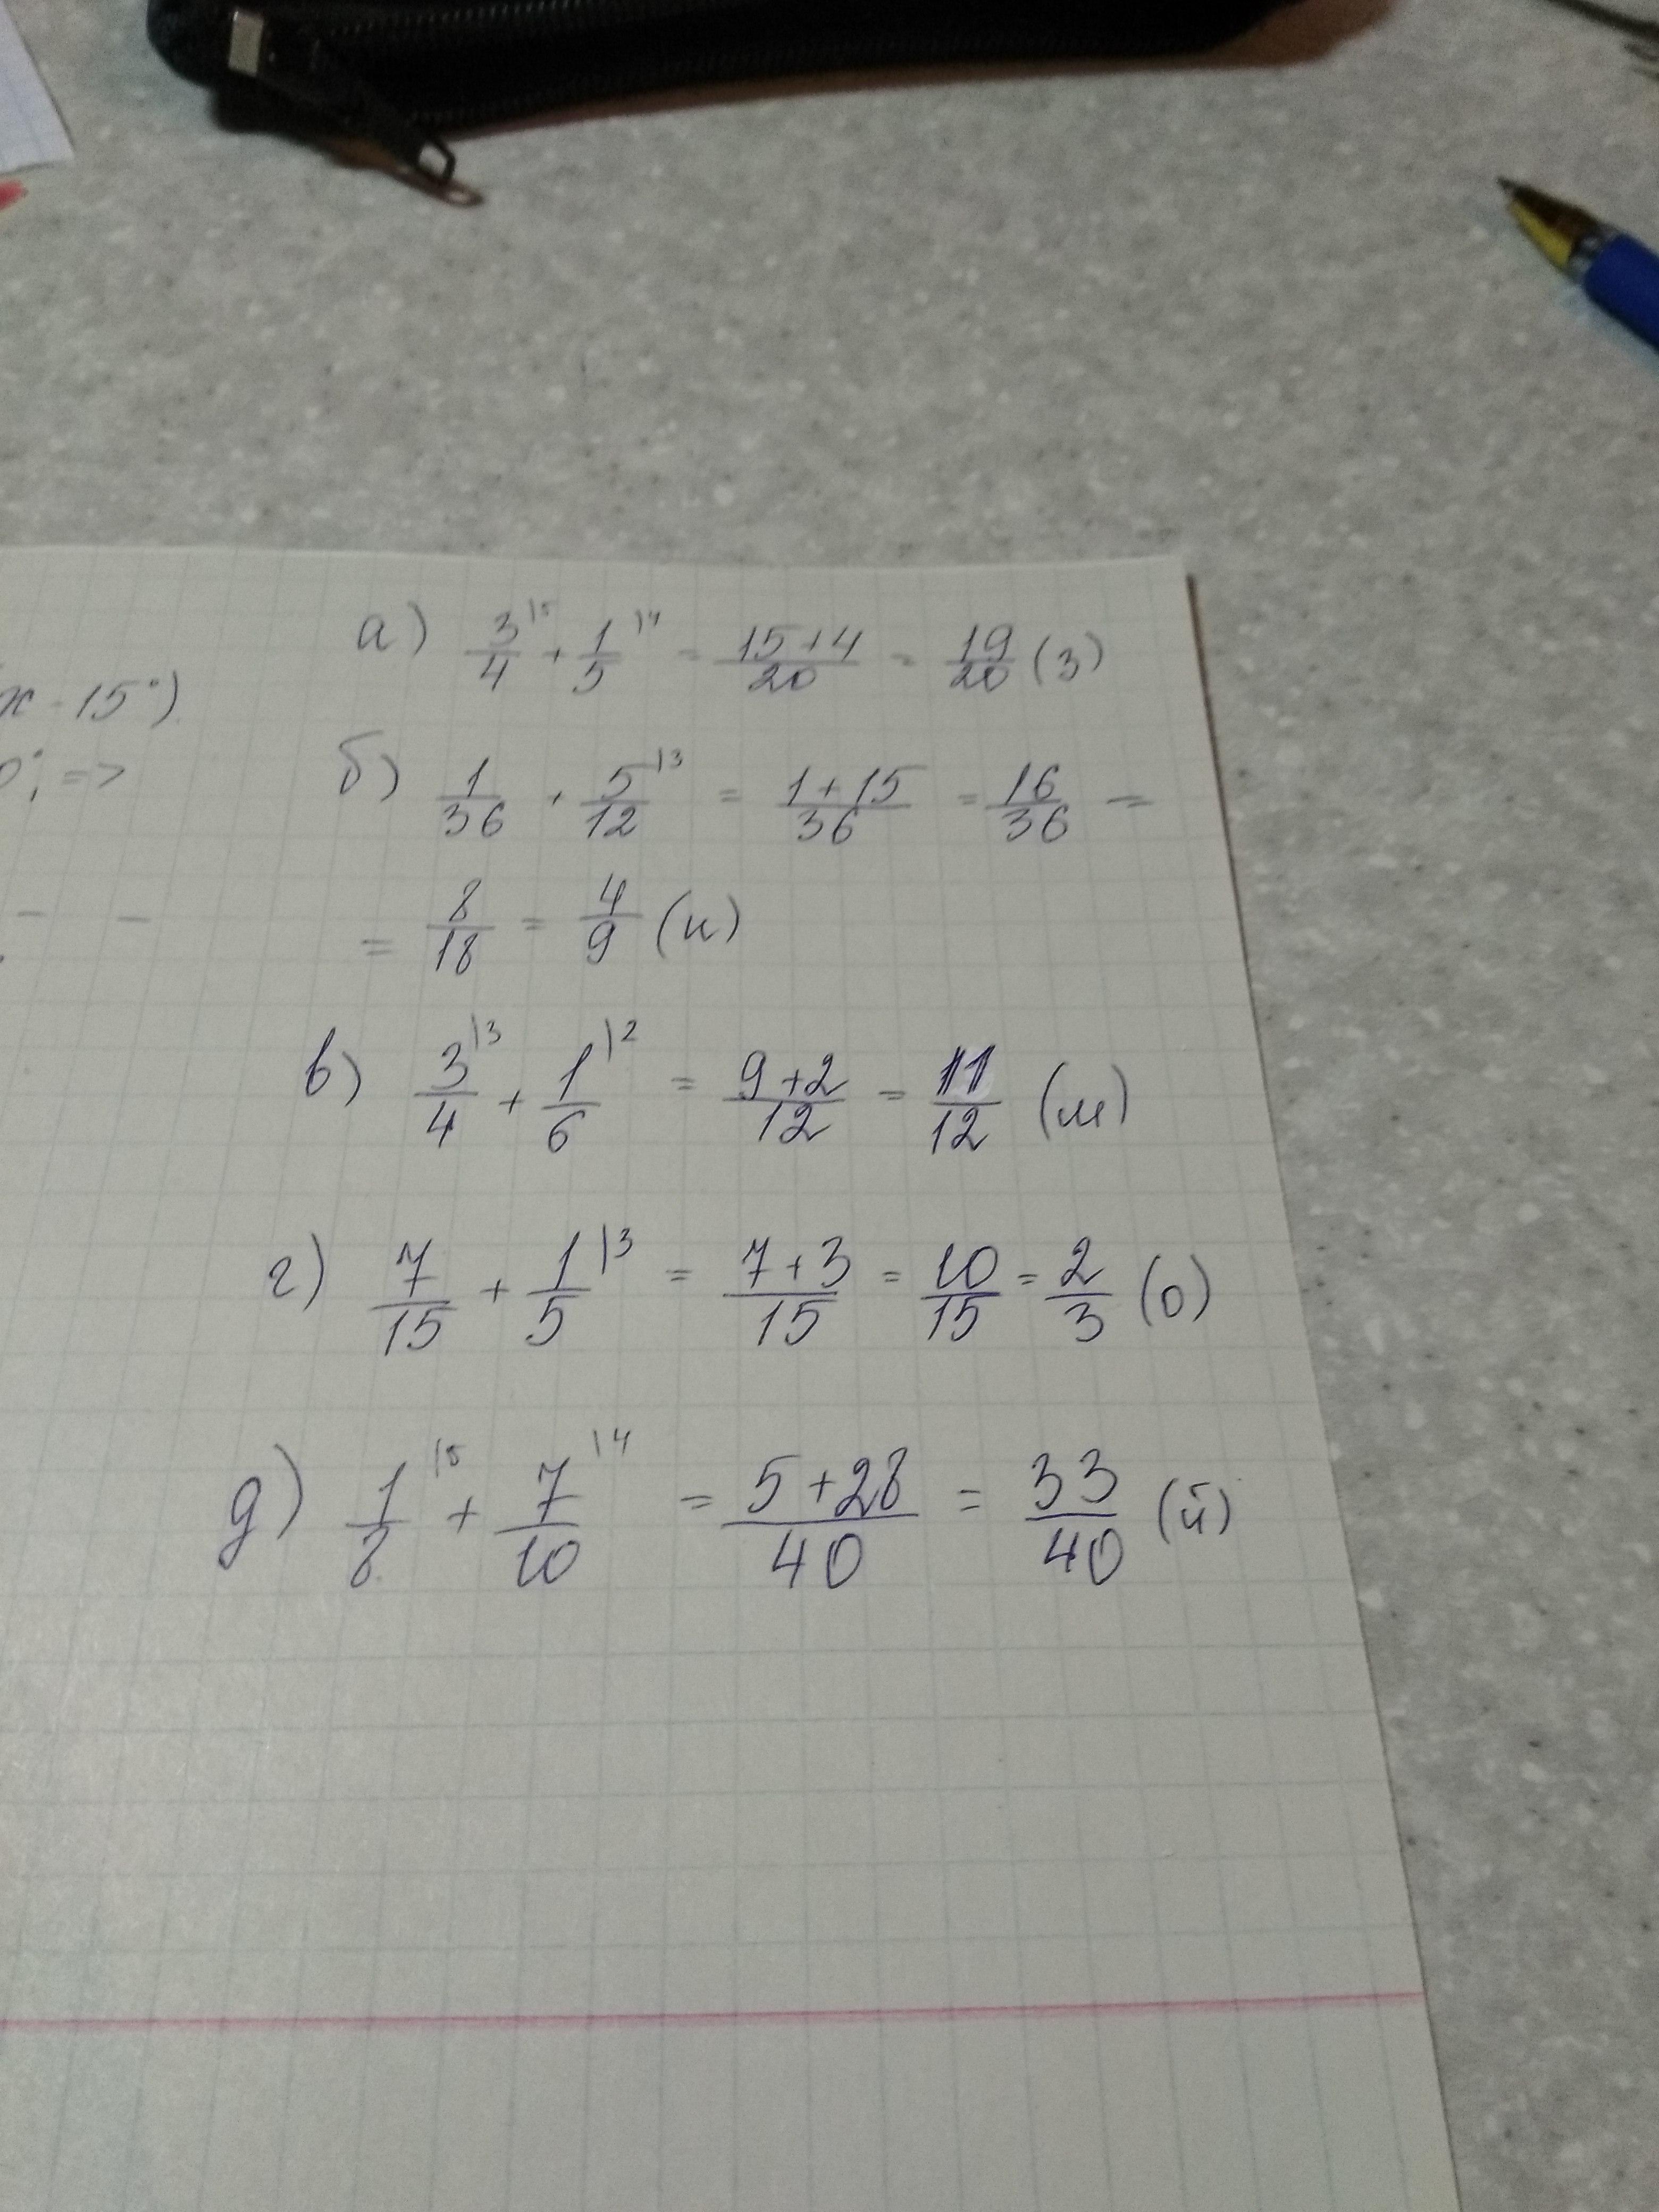 а) 3/4^\5 + 1/5^\4 = 15+4/20 = 19/20 (з)
х - 15°)
б) 1/36 + 5/12^\3 = 1+15/36 = 16/36 =
0°, =>
= 8/18 = 4/9 (и)
- -
в) 3/4^\3 + 1/6^\2 = 9+2/12 = 11/12 (м)
г) 7/15 + 1/5^\3 = 7+3/15 = 10/15 = 2/3 (о)
д) 1/8^\5 + 7/10^\4 = 5+28/40 = 33/40 (й)